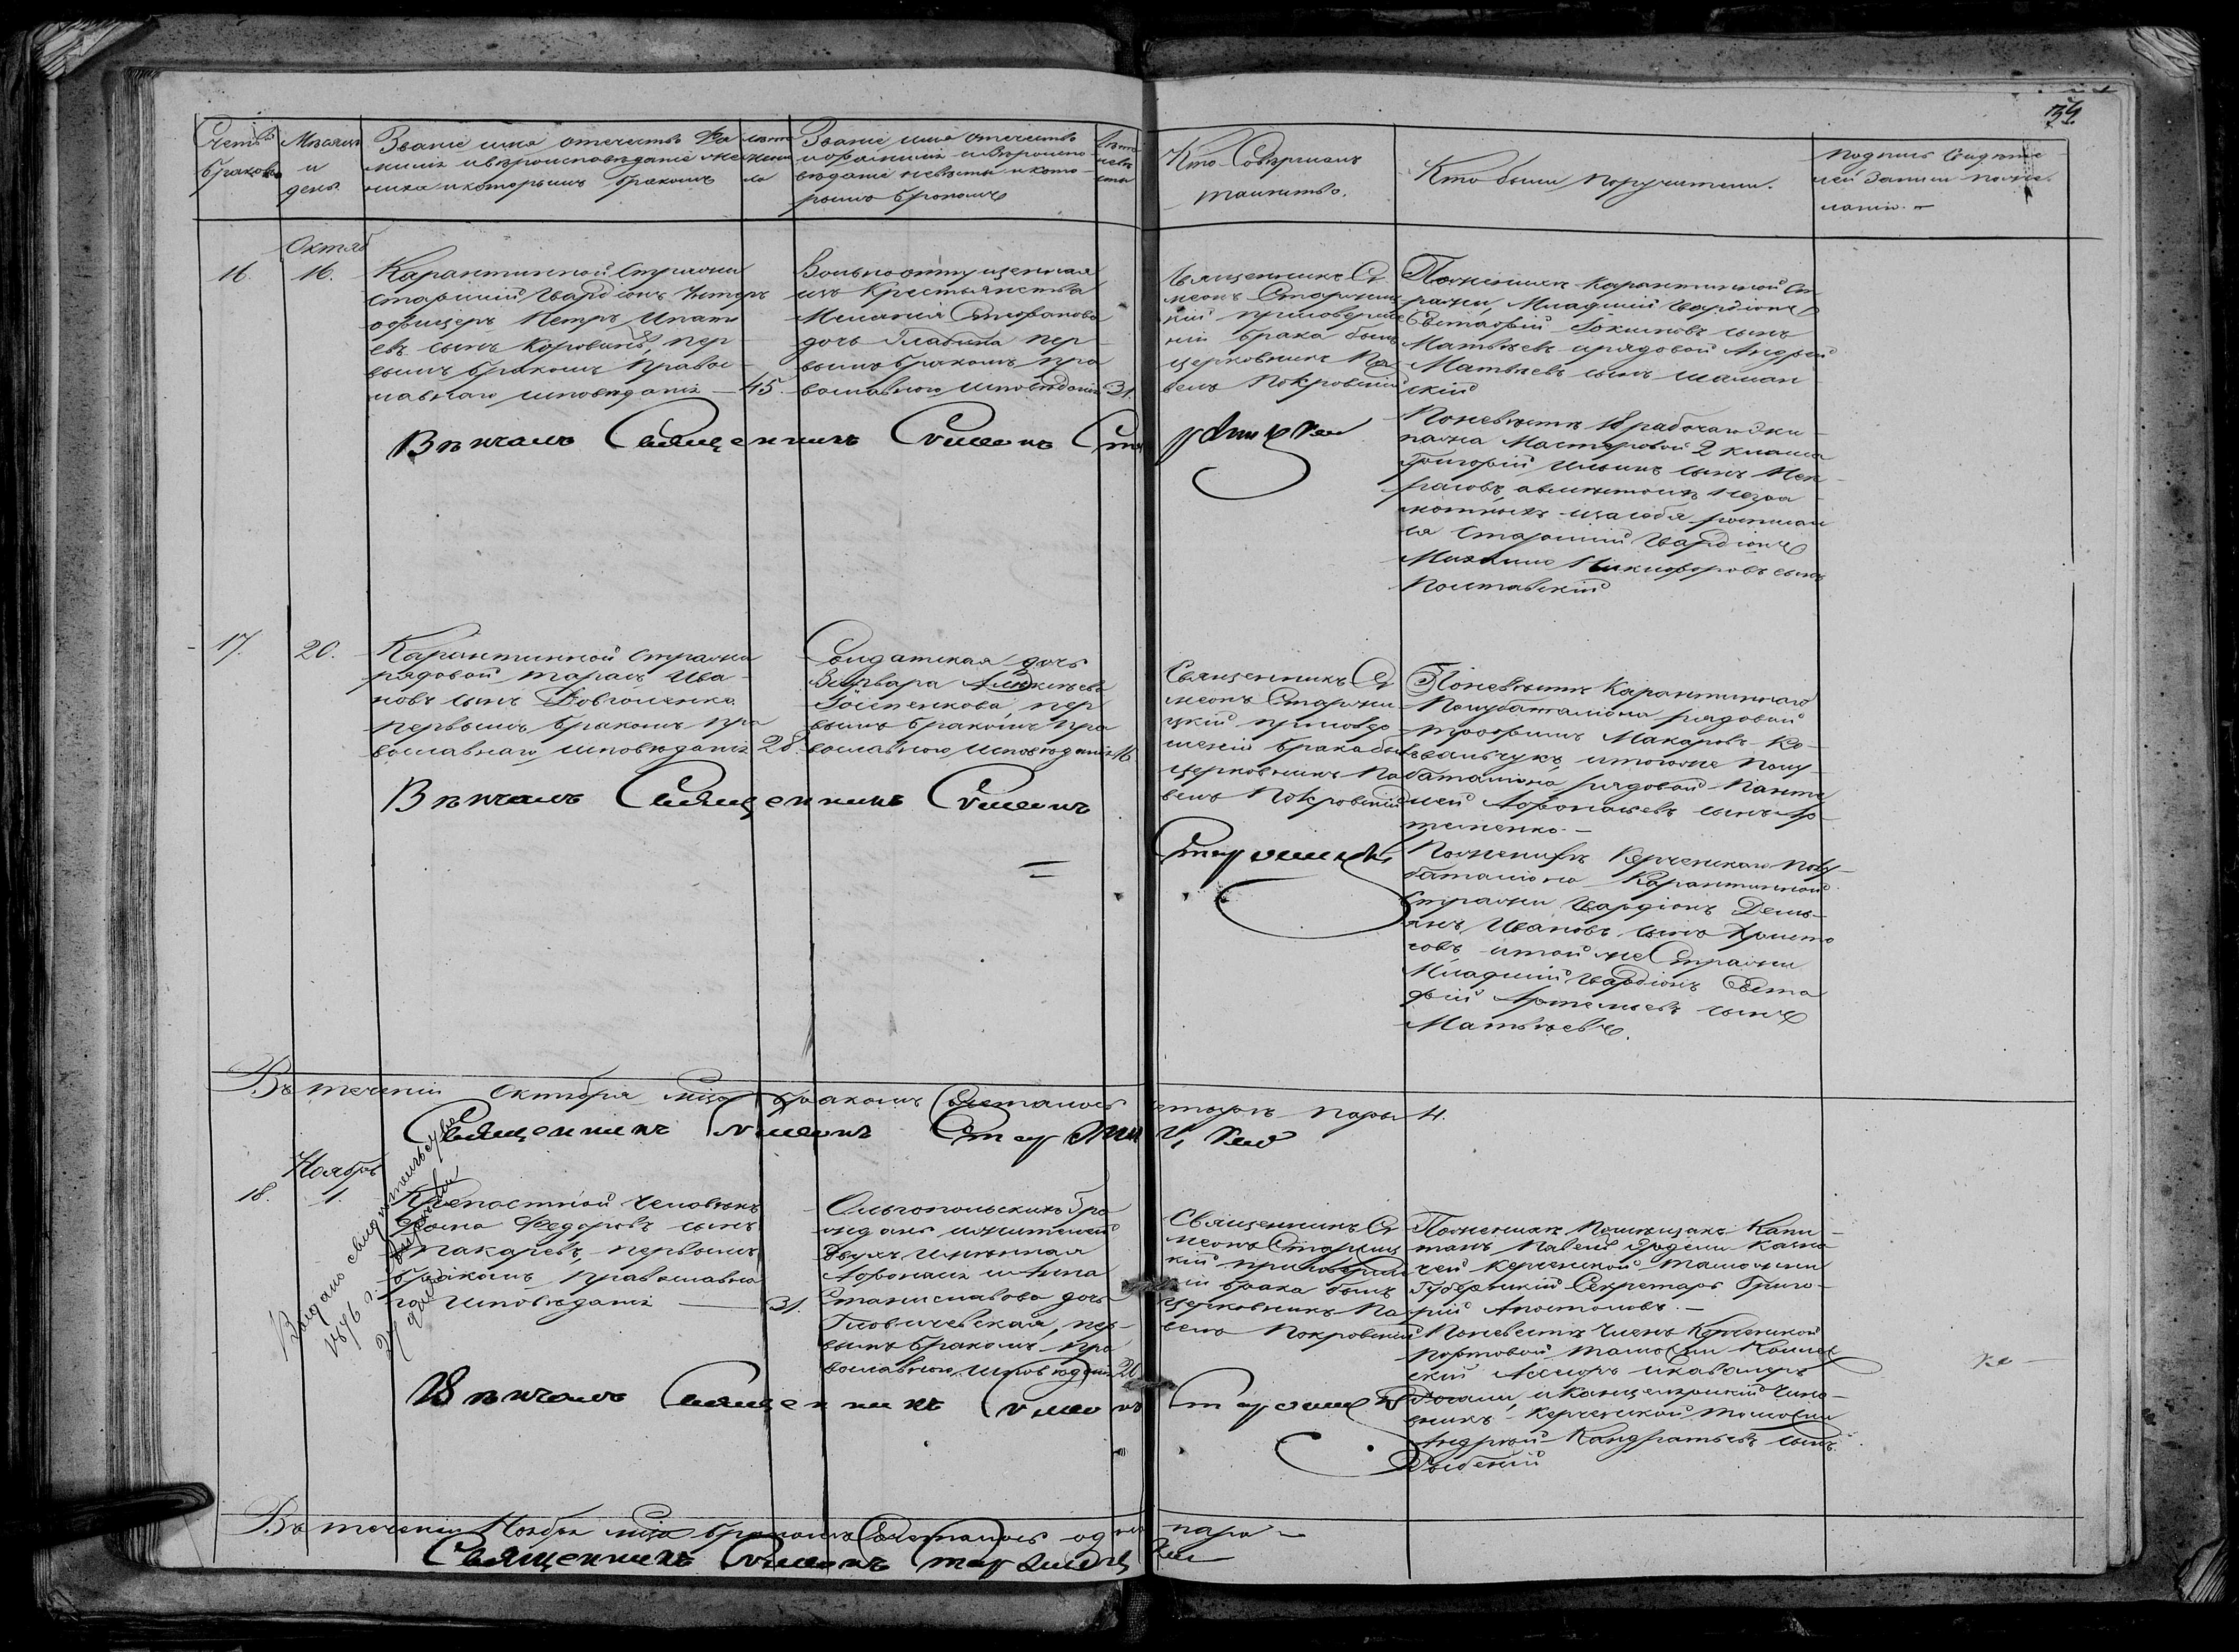 34
Счетъ браковъ
Месяцъ и день
Званіе имя отечество Фа
милія и вѣроисповѣданіе же
ниха и которымъ бракомъ
лѣта жени ха
Званіе имя отечество
и фамилія и вѣроиспо
вѣданіе невѣсты и кото
рымъ бракомъ
лѣта невѣ ста
Кто Совершалъ
таинство.
Кто были поручители.
Подпись Свидѣте
лей Записи по же
ланію.
Октяб
16.
16.
Карантинной Стражи
старшій Гвардіонъ Унтеръ
офицеръ Петръ Ипать
евъ сынъ Коровинъ, пер
вымъ бракомъ Правос
лавнаго исповѣданія
45.
Вольноотпущенная
изъ Крестьянства
Меланія Стефанова
дочь пер
вымъ бракомъ пра
вославного исповѣданія
31.
Священникъ Си
меонъ Старжиц
кій при соверше
ніи брака былъ
церковникъ Па
велъ Покровскій
По женихѣ Карантинной Ст
ражи, Младшій Гвардіонъ
Евстафій сынъ
Матвѣевъ и рядовой Андрей
Матвѣевъ сынъ Шиман
скій
По невѣстѣ 18 рабочаго Эки
пажа Мастеровой 2 класса
Григорій Ильинъ сынъ Нек
расовъ, а вместо ихъ негра
мотныхъ и за себя росписал
ся Старшій Гвардіонъ
Михаилъ Никифоровъ сынъ
Полтавскій
Вѣнчалъ Священникъ Симеонъ Старжицкій
17.
20.
Карантинной Стражи
рядовой Тарасъ Ива
новъ сынъ Довголенко
первымъ бракомъ пра
вославнаго исповѣданія
28.
Солдатская дочь
Варвара
пер
вымъ бракомъ пра
вославного исповѣданія
16.
Священникъ Си
меонъ Старжи
цкій при совер
шеніи брака былъ
церковникъ Па
велъ Покровскій
По невѣстѣ Карантиннаго
Полубаталіона рядовой
Трофимъ Макаровъ Ко
вальчукъ, и того же полу
баталіона рядовой Панте
лей Афонасьевъ сынъ Ар
теменко.
По женихѣ Керченскаго полу
баталіона Карантинной
Стражи Гвардіонъ Демь
янъ Ивановъ сынъ
совъ, и той же Стражи
Младшій Гвардіонъ Евста
фій Артемьевъ сынъ
Матвѣевъ.
Вѣнчалъ Священникъ Симеонъ
Старжицкій
Въ теченіи Октября мца бракомъ Сочеталось четыре пары 4.
Священникъ Симеонъ Старжицкій
Ноябрь
18.
1.
Выдано свидѣтельство
1876 г.
27
Крепостной человѣкъ
Фома Федоровъ сынъ
Макаревъ, первымъ
бракомъ православна
го исповѣданія
31.
Ольгопольскихъ Гра
жданъ
Афонасія и Анна
Станиславова дочь
пер
вымъ бракомъ пра
вославнаго исповѣданія
20
Священникъ Си
меонъ Старжиц
кій при соверше
ніи брака былъ
церковникъ Па
велъ Покровскій
По женихѣ Помѣщикъ Капи
танъ Павелъ
чей Керченской Таможни
Губернскій Секретарь Григо
рій Апостоловъ.
По невестѣ Членъ Керченской
портовой таможни Коллеж
скій Асесоръ и кавалеръ
и Канцелярскій чино
вникъ Керченской таможни
Андрей Кандратьевъ сынъ
Вѣнчалъ Священникъ Симеонъ Старжицкій
Въ теченіи Ноября мца бракомъ Сочеталось одна пара
Священникъ Симеонъ Старжицкій